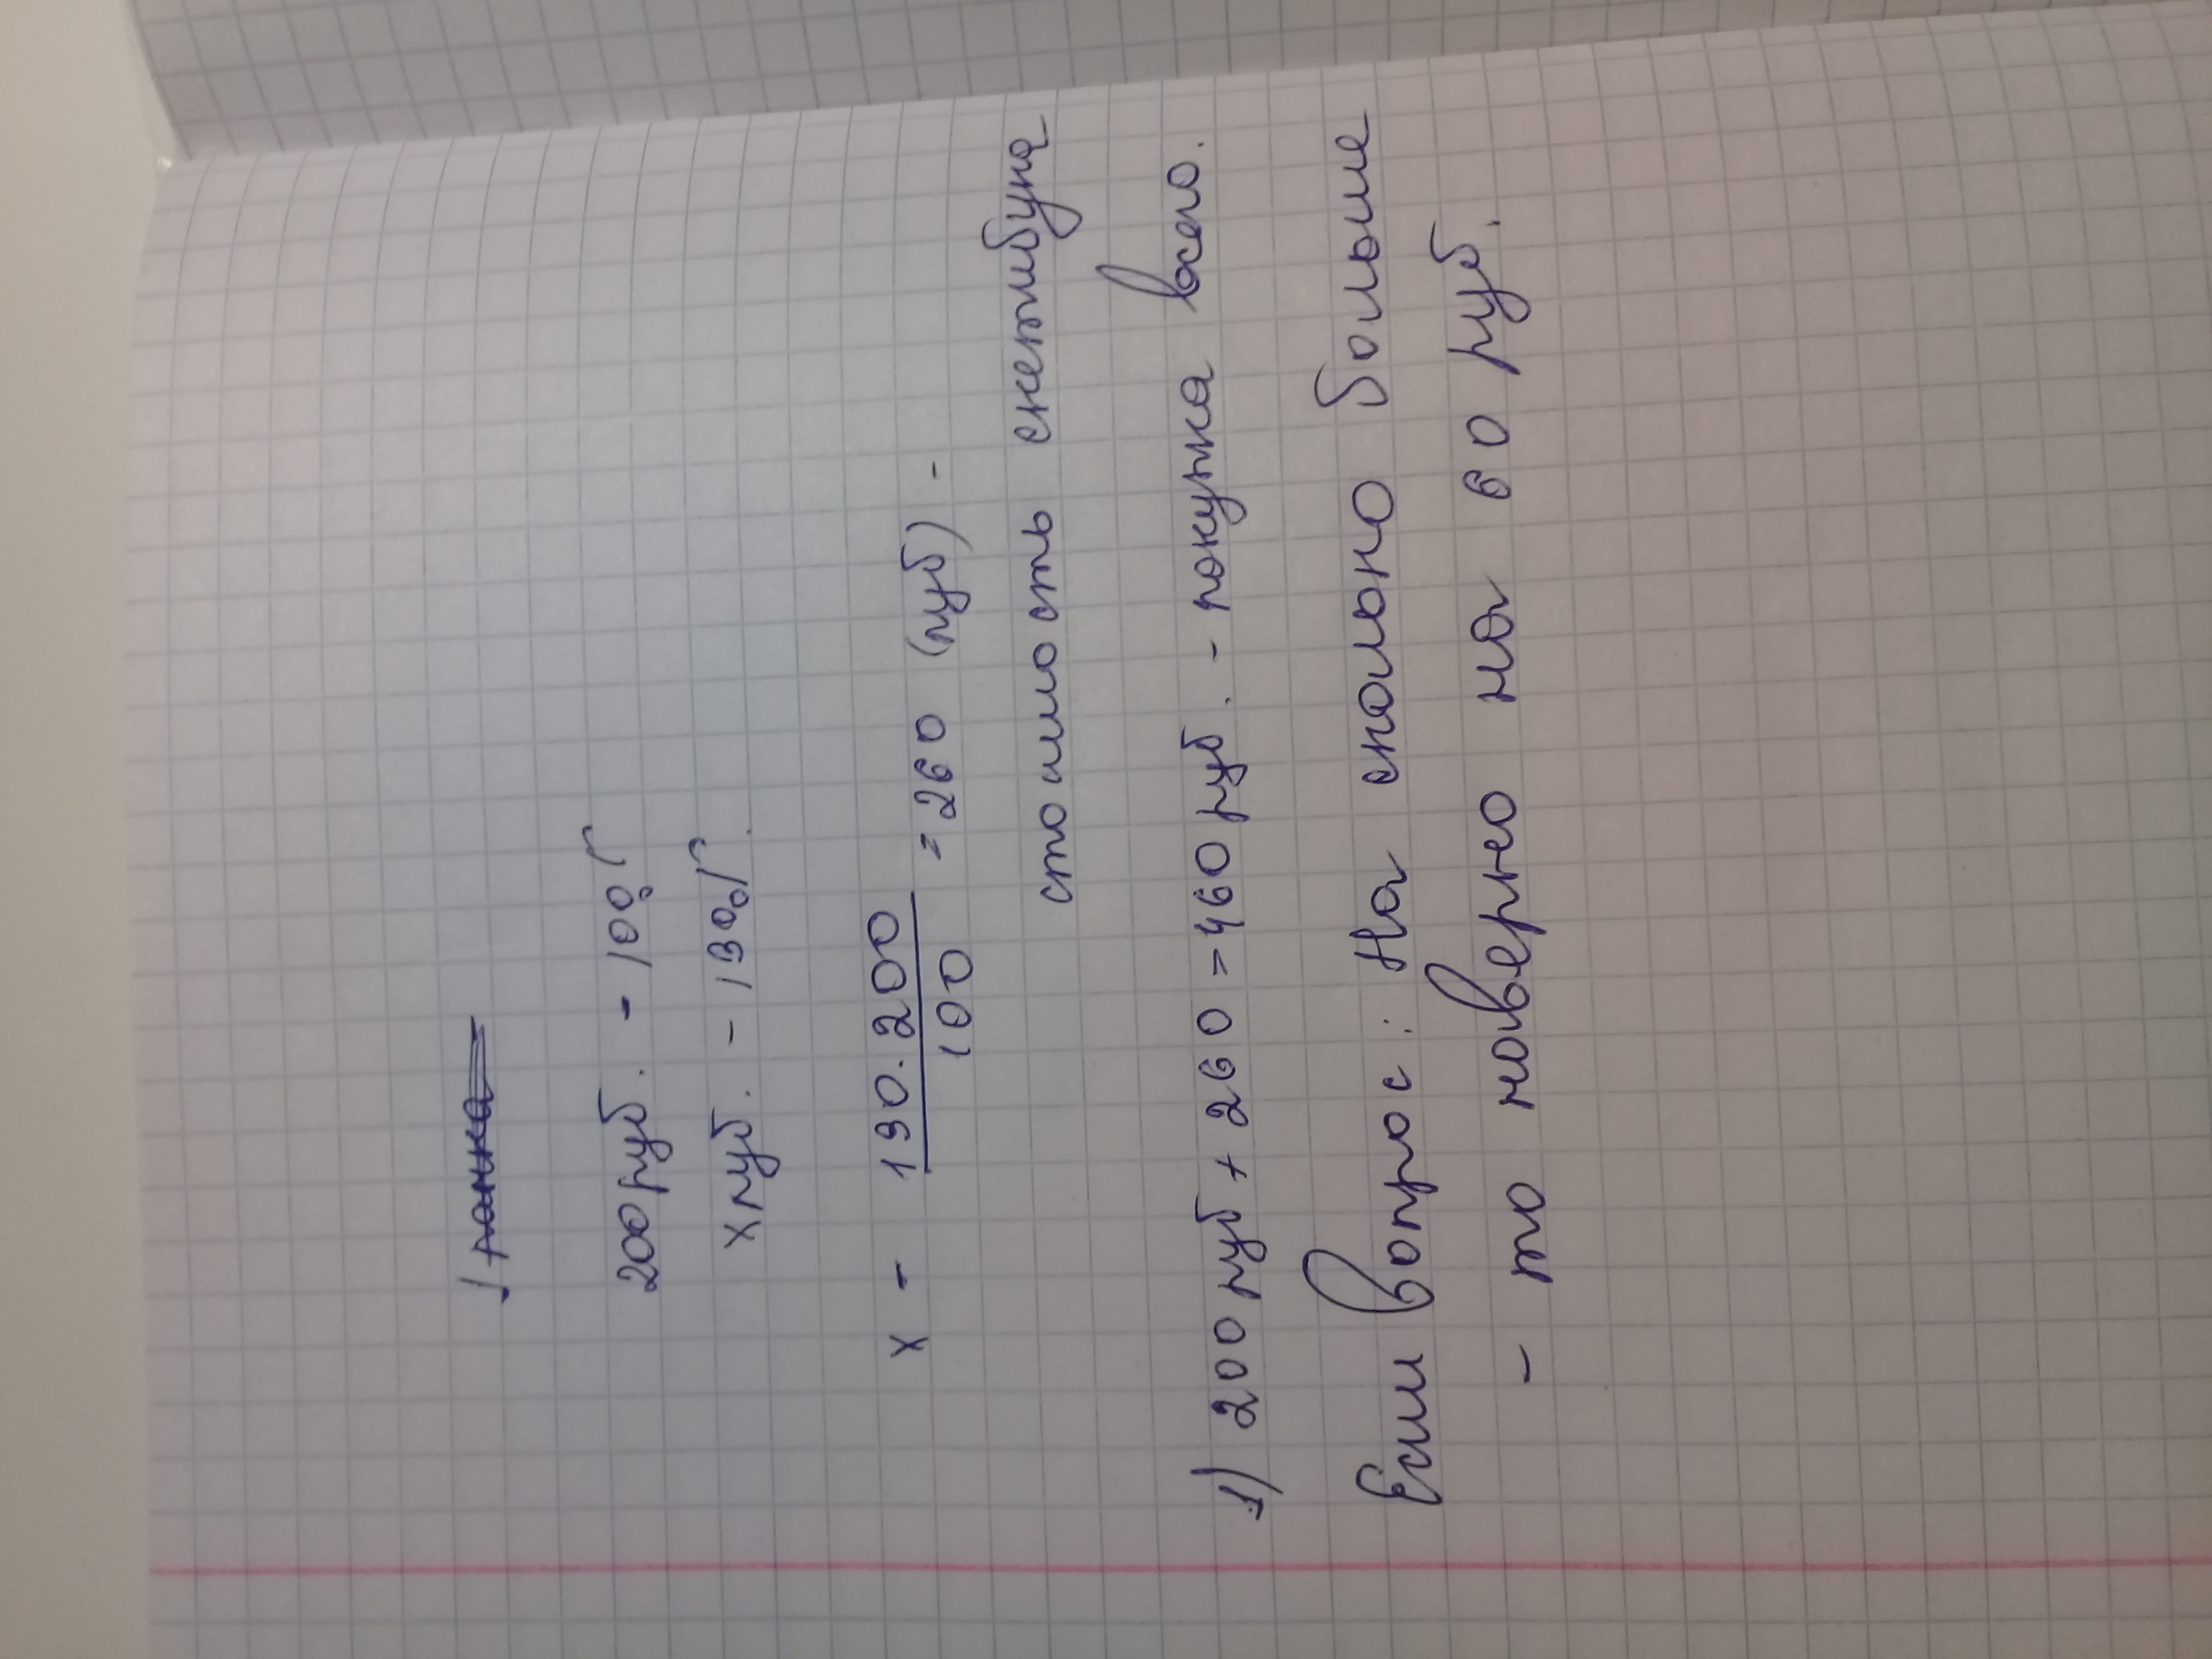 200 руб. - 100%
x руб. - 130%.
x - 130.200
100
= 260 (руб) -
стоимость скетчбука
1) 200 руб + 260 = 460 руб. - покупка всего.
Если вопрос: На сколоко больше
- то наверно на 60 руб.